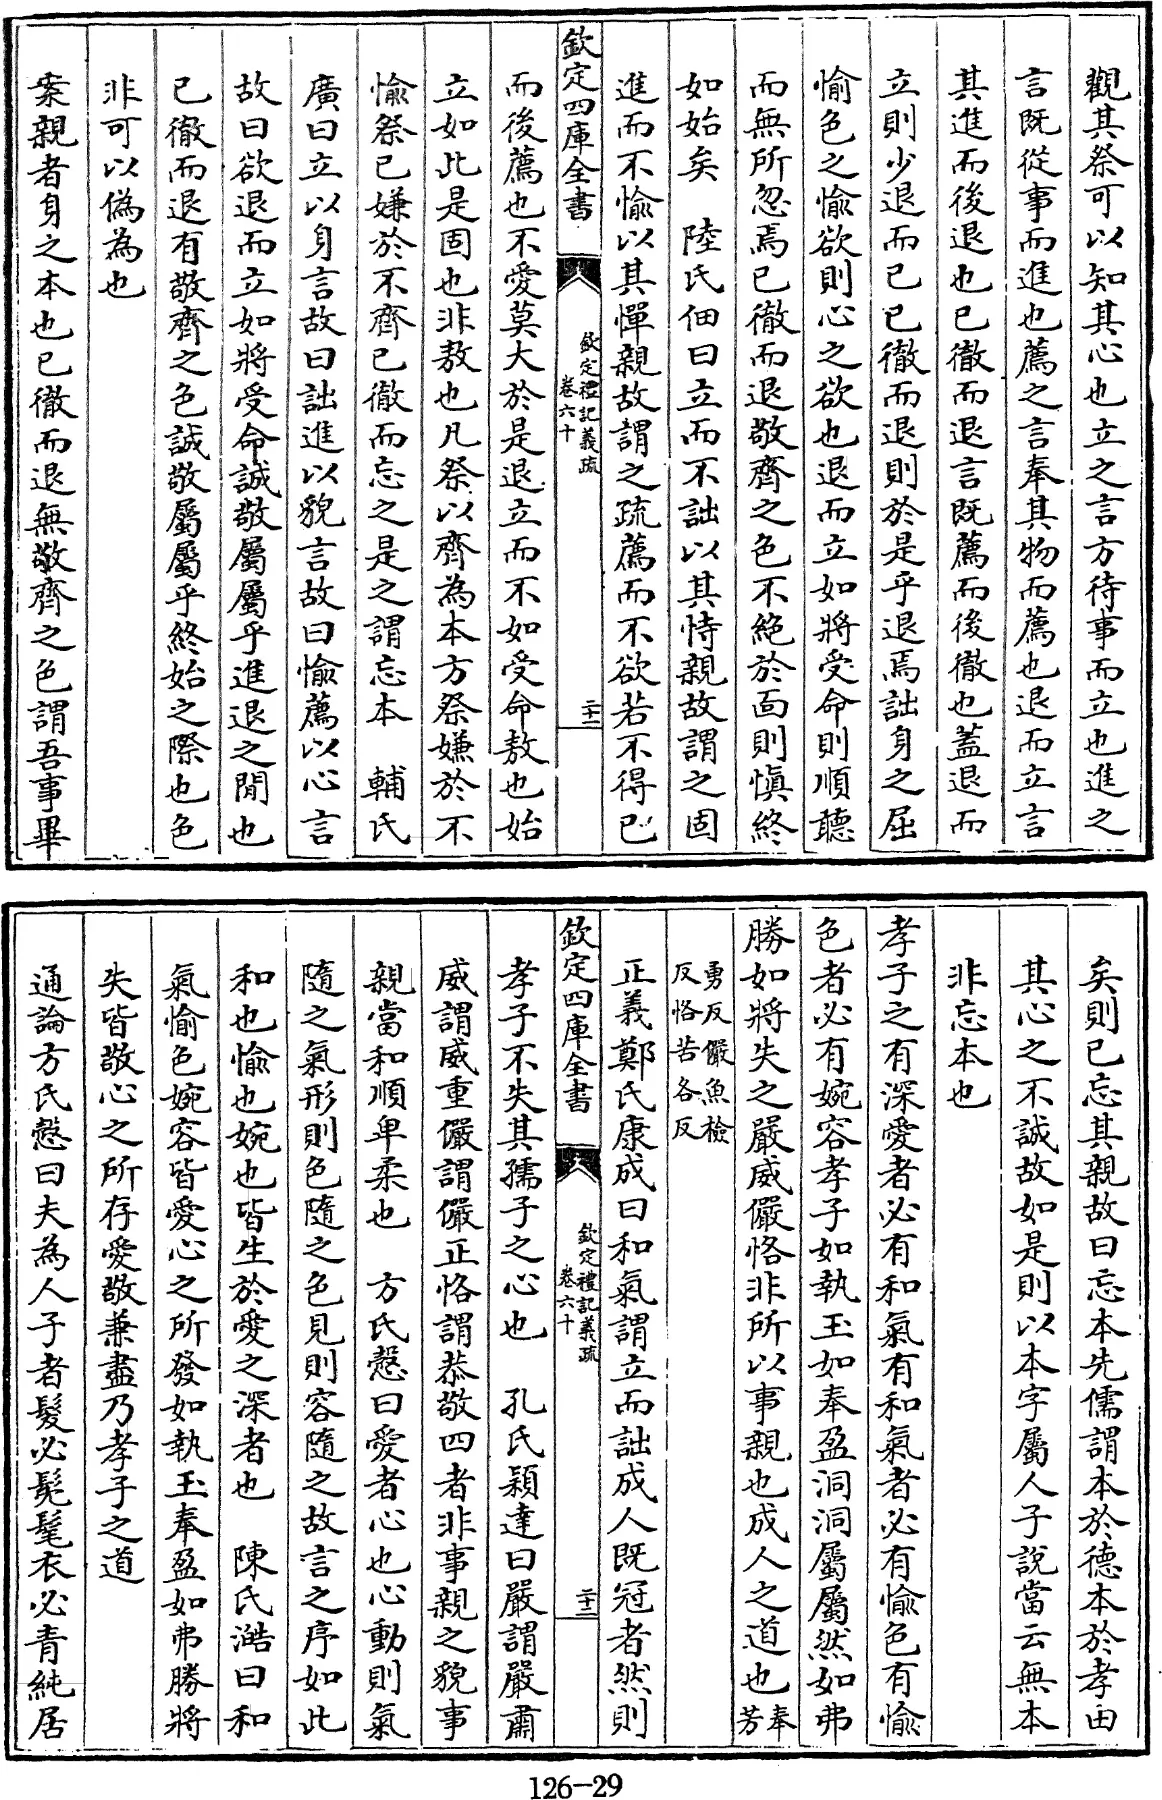 觀其祭可以知其心也立之言方待事而立也進之
言既從事而進也薦之言奉其物而薦也退而立言
其進而後退也已徹而退言既薦而後徹也蓋退而
立則少退而已已徹而退則於是乎退焉詘身之屈
愉色之愉欲則心之欲也退而立如將受命則順聽
而無所忽焉已徹而退敬齊之色不絶於面則慎終
如始矣　陸氏佃曰立而不詘以其恃親故謂之固
進而不愉以其憚親故謂之疏薦而不欲若不得已
欽定四庫全書
欽定禮記義疏
卷六十
二十一
而後薦也不愛莫大於是退立而不如受命敖也始
立如此是固也非敖也凡祭以齊為本方祭嫌於不
愉祭已嫌於不齊已徹而忘之是之謂忘本　輔氏
廣曰立以身言故曰詘進以貌言故曰愉薦以心言
故曰欲退而立如將受命誠敬屬屬乎進退之閒也
已徹而退有敬齊之色誠敬屬屬乎終始之際也色
非可以偽為也
案親者身之本也已徹而退無敬齊之色謂吾事畢
矣則已忘其親故曰忘本先儒謂本於德本於孝由
其心之不誠故如是則以本字屬人子說當云無本
非忘本也
孝子之有深愛者必有和氣有和氣者必有愉色有愉
色者必有婉容孝子如執玉如奉盈洞洞屬屬然如弗
勝如將失之嚴威儼恪非所以事親也成人之道也奉芳
勇反儼魚檢
反恪苦各反
正義鄭氏康成曰和氣謂立而詘成人既冠者然則
欽定四庫全書
欽定禮記義疏
卷六十
二十二
孝子不失其孺子之心也　孔氏穎達曰嚴謂嚴肅
威謂威重儼謂儼正恪謂恭敬四者非事親之貌事
親當和順卑柔也　方氏慤曰愛者心也心動則氣
隨之氣形則色隨之色見則容隨之故言之序如此
和也愉也婉也皆生於愛之深者也　陳氏澔曰和
氣愉色婉容皆愛心之所發如執玉奉盈如弗勝將
失皆敬心之所存愛敬兼盡乃孝子之道
通論方氏慤曰夫為人子者髮必髧髦衣必青純居
126-29